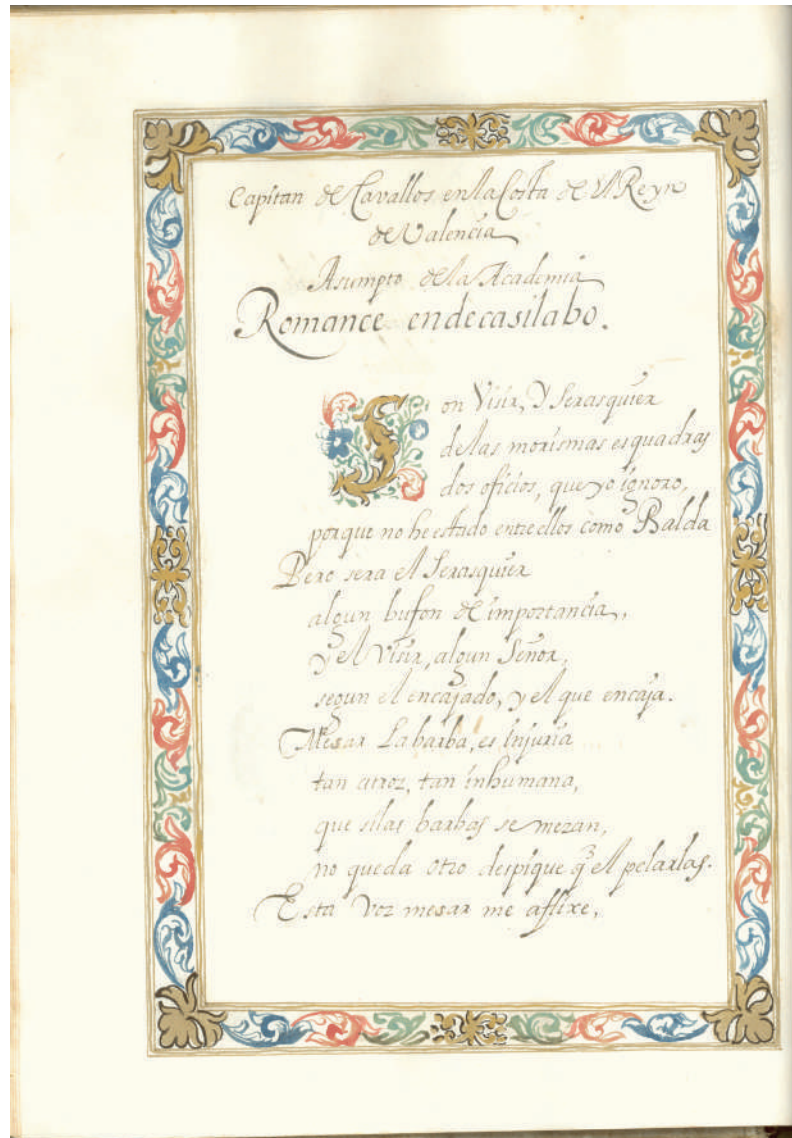 Capitan de Cavallos en la Costa de el Reyno
de Valencia
Asumpto de la Academia
Romance endecasilabo.
Son Visir, y Serasquier
de las morismas esquadras
dos oficios, que yo ignoro,
porque no he estado entre ellos como Balda
Pero sera el Serasquier
algun bufon de importancia,
y el Visir, algun Señor,
segun el encajado, y el que encaja.
Mesar la barba, es injuria
tan atroz, tan inhumana,
que si las barbas se mezan,
no queda otro despique q̃ el pelarlas.
Esta voz mesar me aflixe,